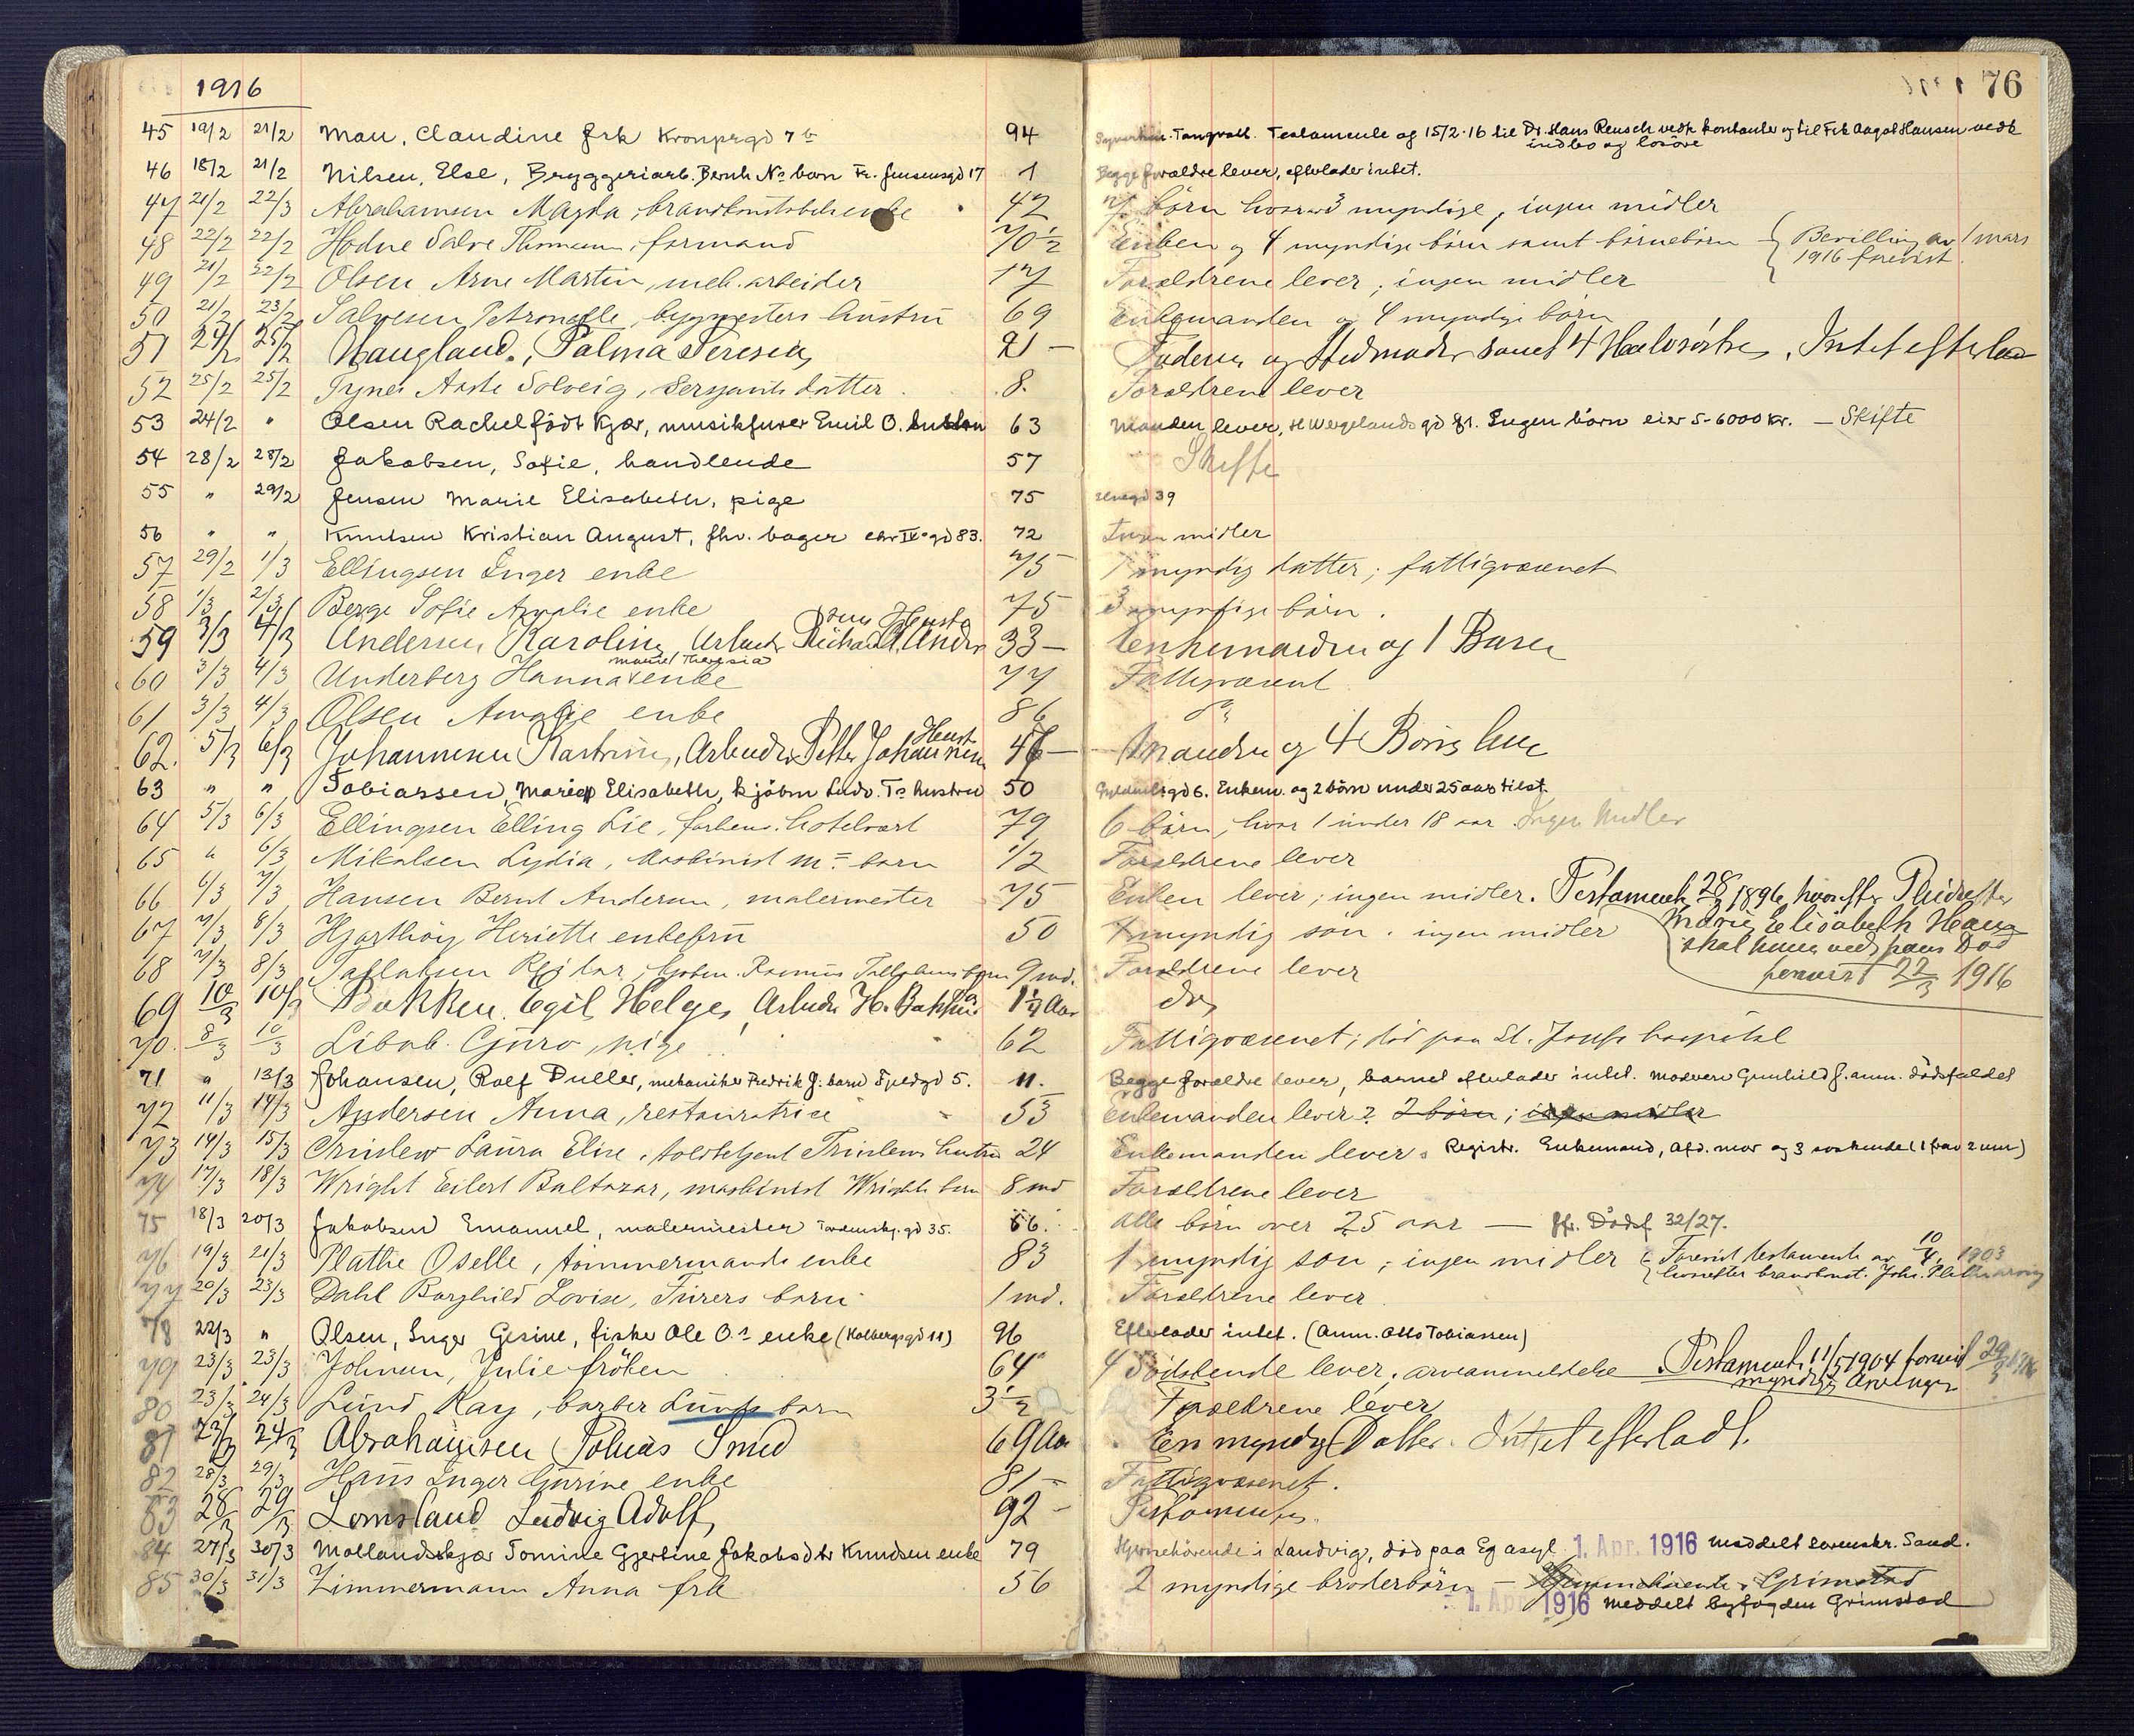 1916
76
45 19/2 21/2 Mau, Claudine frk Kronprgd 7b 94 Tangvall. Testamente af 15/2-16 til Dr. Hans Reusch vedk kontanter og til Frk Aagot Hansen vedk
indbo og løsøre
46 18/2 21/2 Nilsen, Else, Bryggeriarb. Bernh. Ns barn Fr. Jensensgd 17 1 Begge forældre lever, efterlader intet.
47 21/2 22/3 Abrahamsen Magda, enke 42 7 børn hvorav 3 myndige, ingen midler
48 22/2 22/2 Hodne Salve Thomassen, formand 70½ Enken og 4 myndige børn samt børnebørn { Bevilling av 1 mars
1916 forevist
49 21/2 22/2 Olsen Arne Martin, mek. arbeider 17 Forældrene lever, ingen midler
50 21/2 23/2 Salvesen Petronelle, bygmesters hustru 69 Enkemanden og 4 myndige børn
51 24/2 25/2 Haugland, Palma Teresia, 21 – Faderen og Stedmoder samt 4 Halvsøstre, Intet efterladt
52 25/2 25/2 Aaste Solveig, Sersjants datter 8. Forældrene lever
53 24/2 " Olsen Rachel født Kjær, musikfurer Emil O. hustru 63 Manden lever, H Wergelandsgd 81. Ingen børn eier 5-6000 kr. – Skifte
54 28/2 28/2 Jakobsen, Sofie, handlende 57 Skifte
55 " 29/2 Jensen Marie Elisabeth, pige 75 39
56 " " Knutsen Kristian August, fhv. bager Chr IVs gd 83. 72 Ingen midler
57 29/2 1/3 Ellingsen Inger enke 75 1 myndig datter; fattigvæsenet
58 1/3 2/3 Berge Sofie Amalie enke 75 3 myndige børn.
59 3/3 4/3 Andersen Karoline, Arbeider Richard Anders 33 – Enkemanden og 1 Barn
Marie Theresia
60 3/3 4/3 Underberg Hanna enke 77 Fattigvæsenet
61 3/3 4/3 Olsen Amalie enke 86 do
62. 5/3 6/3 Johannesen Kastrine, Arbeider Petter Johannesen Hust 46 – Manden og 4 Børn lever
63 " " Tobiassen, Marie Elisabeth, kjøbm Ludv. Ts hustru 50 gd 6. Enkem. og 2 børn under 25 aar tilst.
64 5/3 6/3 Ellingsen Elling Lie, forhenv. hotelvært 79 6 børn, hvor 1 under 18 aar Ingen Midler
65 " 6/3 Mikalsen Lydia, Maskinist Ms barn 1/2 Forældrene lever
66 6/3 7/3 Hansen Bernt Andersen, malermester 75 Enken lever; ingen midler. Testament 28/ 1896, hvorefter
67 7/3 8/3 Hjorthøy Henriette enkefru 50 1 myndig søn. ingen midler Marie Elisabeth Hansen
skal hun ved hans Død
68 7/3 8/3 9 md. Forældrene lever
forevist 22/3 1916
69 10/3 10/3 Bakken Egil Helge, Arbeider H. Bakken 1¼ Aar do,
70. 8/3 10/3 Guro, pige 62 Fattigvæsenet; død paa St. Josefs hospital
71 " 13/3 Johansen, Rolf Duller, mekaniker Fredrik J. barn Fjeldgd 5. 11. Begge forældre lever, barnet efterlader intet. Moderen Gunhild J. anm. dødsfaldet
72 11/3 14/3 Andersen Anna, restauratrice 53 Enkemanden lever? 2 børn; ingen midler
73 14/3 15/3 Laura Elise, toldbetjent hustru 24 Enkemanden lever. Registr. Enkemand, Afd. mor og 3 søskende (1 frav 2 um)
74 17/3 18/3 Wright Eilert Baltazar, maskinist Wrights barn 8 md Forældrene lever
75 18/3 20/3 Jakobsen Emanuel, malermester Tordenskj. gd 35. 66. Alle børn over 25 aar – Jfr. Dødsf 32/27.
76 19/3 21/3 Plathe Oselle, tømmermands enke 83 1 myndig søn; ingen midler { Forevist testamente av 10/4 1903
hvorefter brandkonst. Joh. Plathe arving
77 20/3 23/3 Dahl Borghild Lovise, Furers barn 1 md. Forældrene lever.
78 22/3 " Olsen, Inger Gesine, fisker Ole O.s enke (Holbergsgd 11) 96 Efterlader intet. (Anm. Otto Tobiassen)
79 23/3 23/3 Johnsen, Julie frøken 64 4 Sødskende lever; arveanmeldelse. Testament 11/5 1904 forevist 29/3 1916
myndige Arvinger
80 23/3 24/3 Lund Kay, barber Lunds barn 3½ Forældrene lever
81 23/3 24/3 Abrahamsen Tobias Smed 69 Aar En myndig Datter. Intet efterladt.
82 28/3 29/3 Hans Inger Gurine enke 81 – Fattigvæsenet.
83 28/3 29/3 Lomsland Ludvig Adolf, 92 – Testament.
84 27/3 30/3 Mollandskjær Tomine Gjertine Jakobsdtr Knudsen enke 79 Hjemmehørende i Landvig, død paa Eg asyl 1. Apr. 1916 meddelt sorenskr. Sand.
85 30/3 31/3 Zimmermann Anna frk 56 2 myndige broderbørn – Hjemmehørende i Grimstad
1. Apr. 1916 meddelt byfogden Grimstad